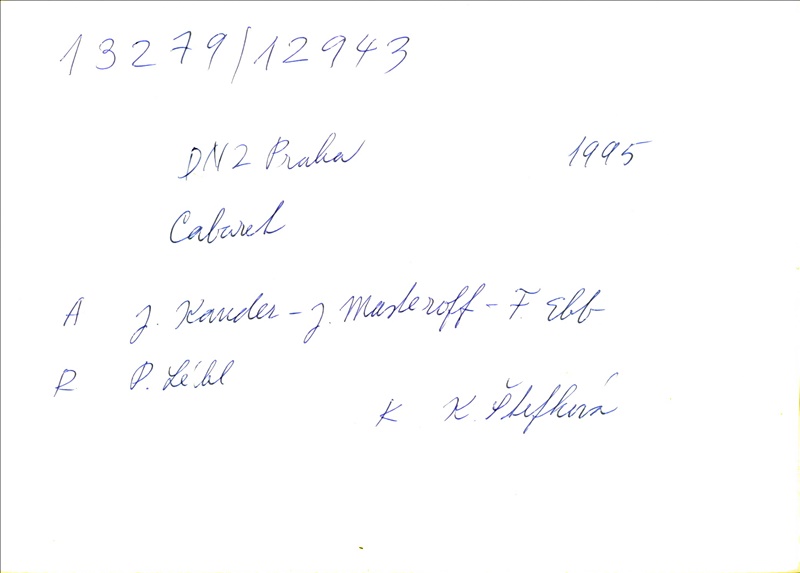 13279/12943
DNZ Praha 1995
Cabaret
A J. Kander - J. Masteroff - F. Ebb
R P. Lébl
K K. Štefková